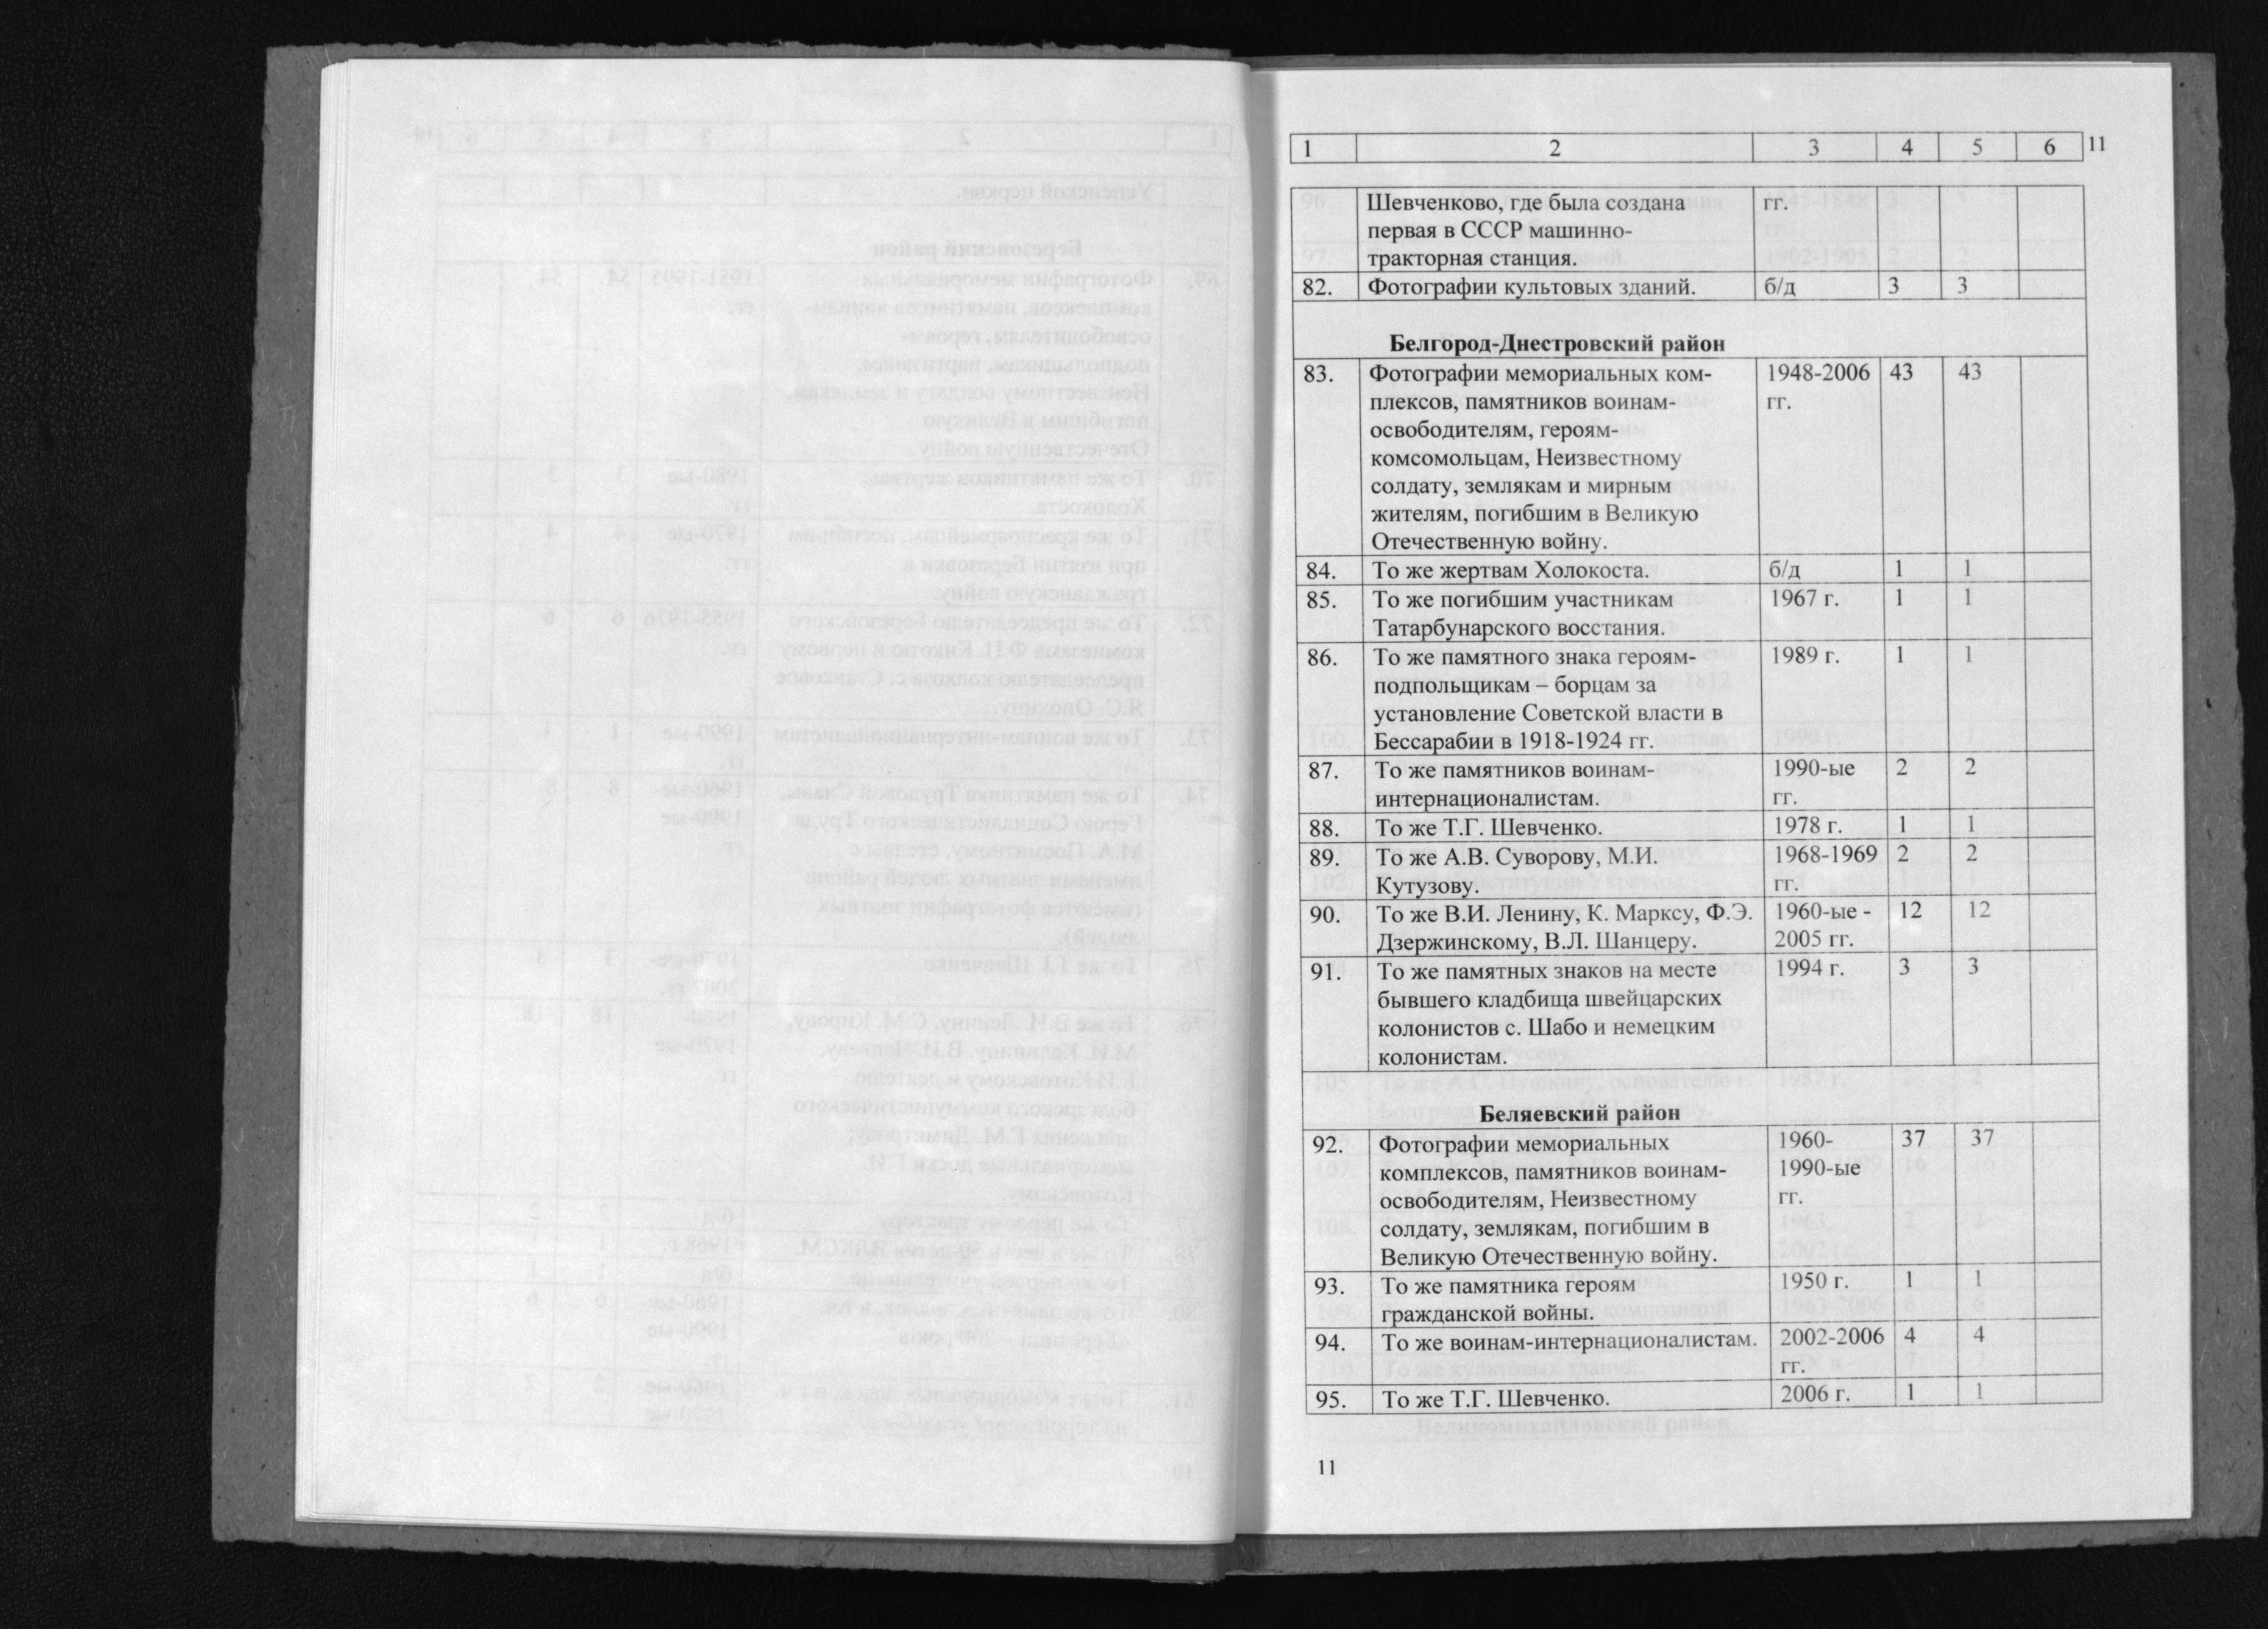 1 2 3 4 5 6 11
Шевченково, где была создана гг.
первая в СССР машинно-
тракторная станция.
82. Фотографии культовых зданий. б/д 3 3
Белгород-Днестровский район
83. Фотографии мемориальных ком- 1948-2006 43 43
плексов, памятников воинам- гг.
освободителям, героям-
комсомольцам, Неизвестному
солдату, землякам и мирным
жителям, погибшим в Великую
Отечественную войну.
84. То же жертвам Холокоста. б/д 1 1
85. То же погибшим участникам 1967 г. 1 1
Татарбунарского восстания.
86. То же памятного знака героям- 1989 г. 1 1
подпольщикам – борцам за
установление Советской власти в
Бессарабии в 1918-1924 гг.
87. То же памятников воинам- 1990-ые 2 2
интернационалистам. гг.
88. То же Т.Г. Шевченко. 1978 г. 1 1
89. То же А.В. Суворову, М.И. 1968-1969 2 2
Кутузову. гг.
90. То же В.И. Ленину, К. Марксу, Ф.Э. 1960-ые - 12 12
Дзержинскому, В.Л. Шанцеру. 2005 гг.
91. То же памятных знаков на месте 1994 г. 3 3
бывшего кладбища швейцарских
колонистов с. Шабо и немецким
колонистам.
Беляевский район
92. Фотографии мемориальных 1960- 37 37
комплексов, памятников воинам- 1990-ые
освободителям, Неизвестному гг.
солдату, землякам, погибшим в
Великую Отечественную войну.
93. То же памятника героям 1950 г. 1 1
гражданской войны.
94. То же воинам-интернационалистам. 2002-2006 4 4
гг.
95. То же Т.Г. Шевченко. 2006 г. 1 1
11